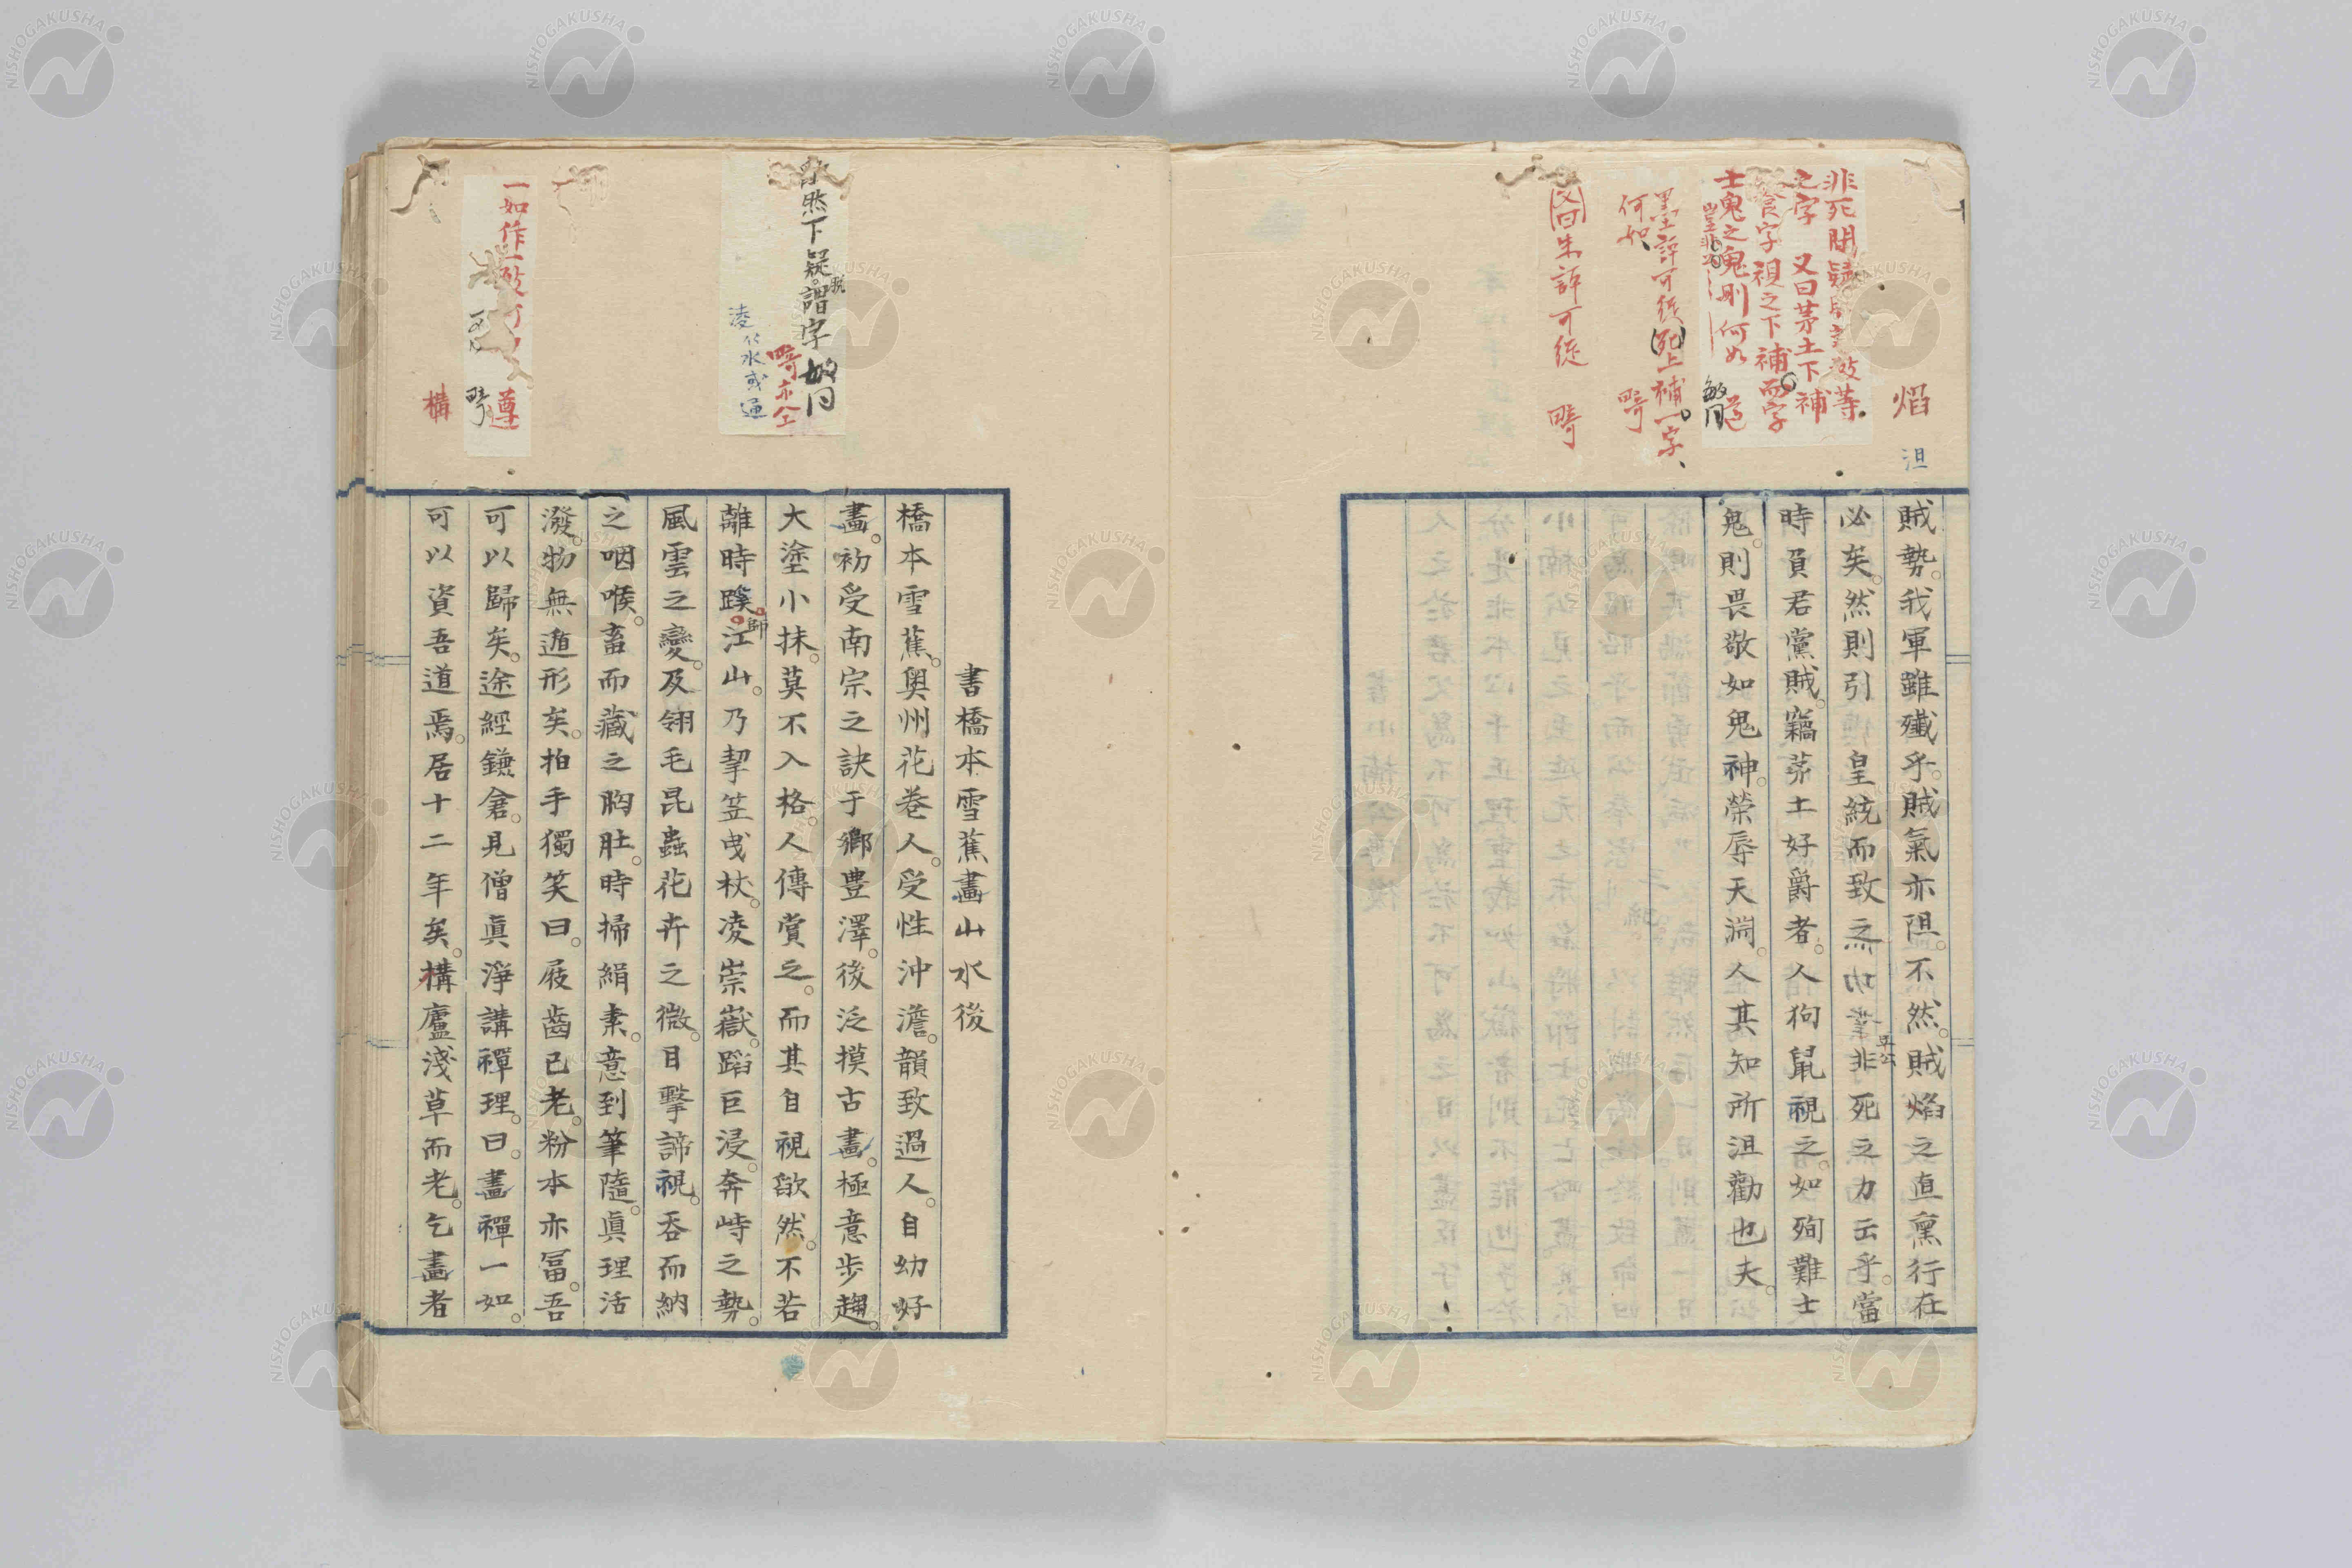 焰
沮
非死間
之字 又曰茅土下補
食字視之下補而字
士鬼之鬼則何如
敏同
墨評可從死上補一字、
何如 畸
又曰朱評可從 畸
賊勢。我軍雖殲乎。賊氣亦阻。不然。賊焰之直薰行在
必矣。然則引 皇統而致之功業非死之力云乎。當
時負君黨賊。竊茅土好爵者。人狗鼠視之。如殉難士
鬼。則畏敬如鬼神。榮辱天淵。人其知所沮勸也夫。
然下疑脱謂字 敏同
畸亦仝
凌
水或通
一如作一致
遵
畸
構
書橋本雪蕉畫山水後
橋本雪蕉。奧州花卷人。受性沖澹。韻致過人。自幼好
畫。初受南宗之訣于鄉豊澤。後泛摸古畫。極意步趨。
大塗小抹。莫不入格。人傳賞之。而其自視欿然。不若
離時蹊師江山。乃挈笠曳杖。凌崇嶽。蹈巨浸。奔峙之勢。
風雲之變。及翎毛昆蟲花卉之微。目擊諦視。吞而納
之咽喉。畜而藏之胸肚。時掃絹素。意到筆隨。眞理活
潑。物無遁形矣。拍手獨笑曰。屐齒已老。粉本亦冨。吾
可以歸矣。途經鎌倉。見僧眞淨講禪理。曰。畫禪一如。
可以資吾道焉。居十二年矣。構廬淺草而老。乞畫者
NISHOGAKUSHA